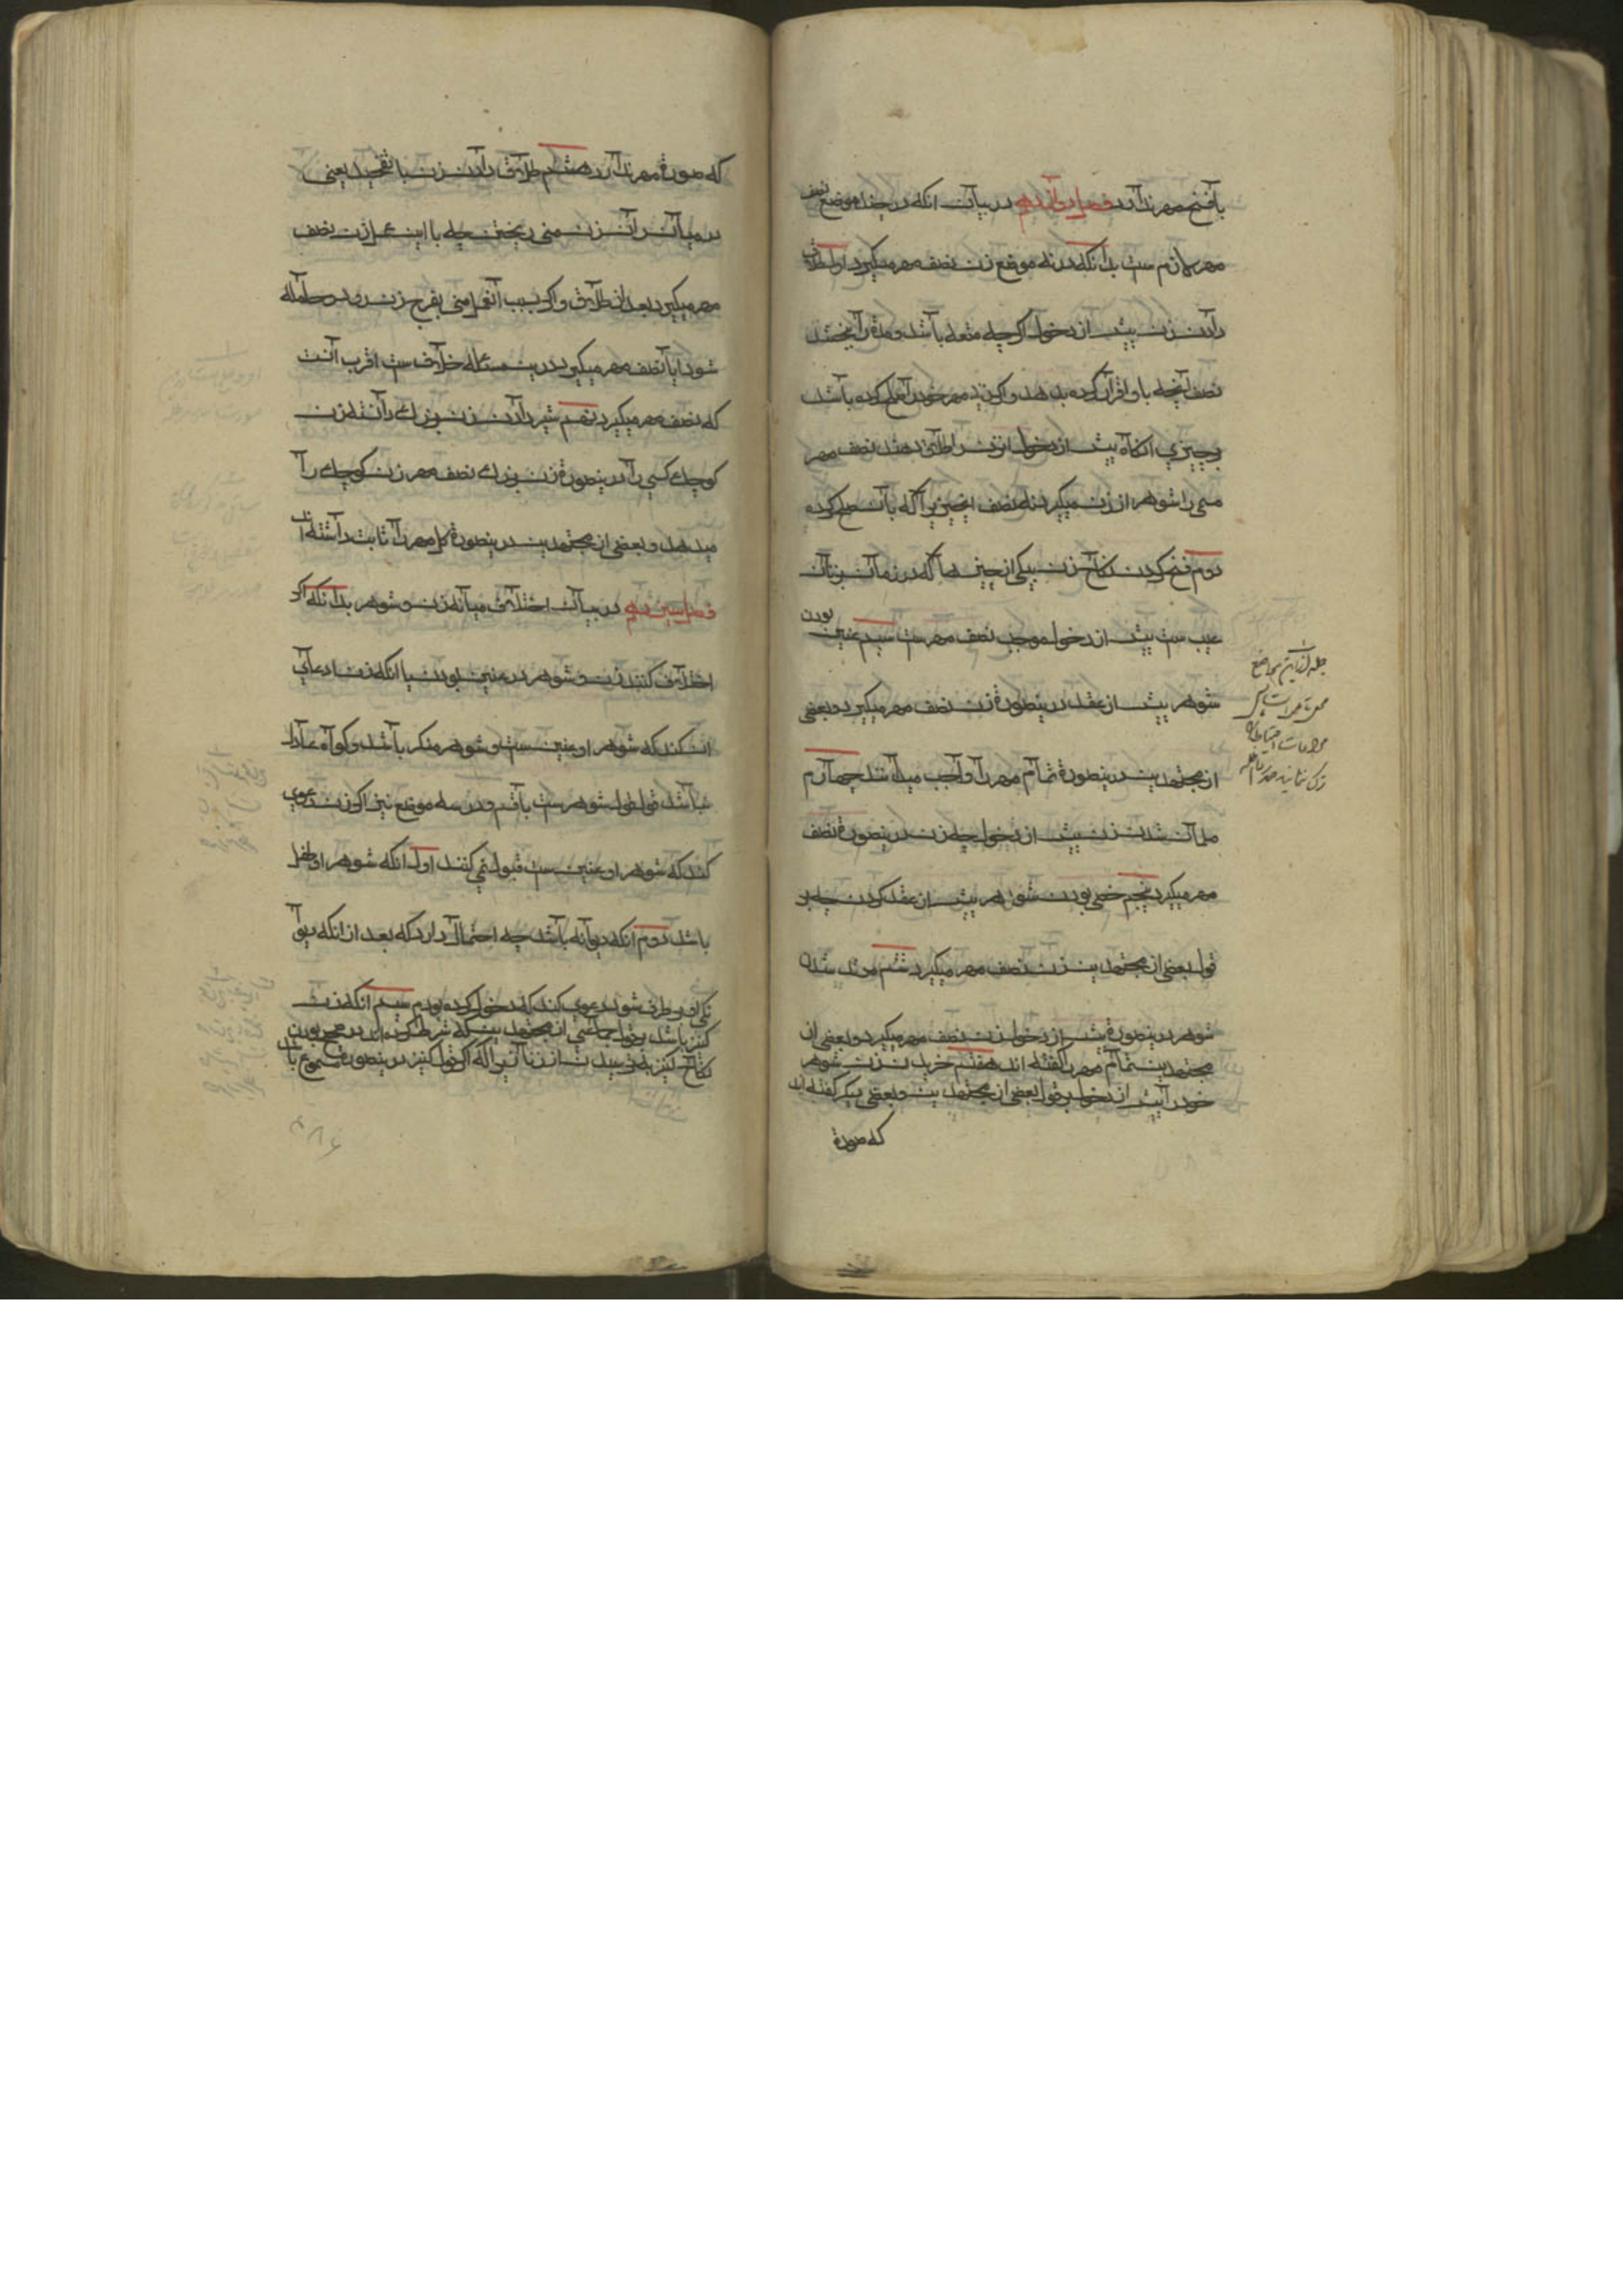 با فسخ مهر ندارد فصل دوازدهم در بیان انکه در چند موضع نصف
مهر لازم ست بدانکه در نه موضع زن نصف مهر میگیرد اول طلاق
دادن زن پیش از دخول اگرچه متعه باشد و مدة را بخشد
نصف آنچه باو قرار کرده بدهد و اگر زن مهر خود را صلح کرده باشد
بچیزی انکاه پیش از دخول انزن را طلاق دهند نصف مهر
مسمی را شوهر از زن میگیرد نه نصف انچیزیرا که بآن صلح کرده
دوم فسخ کردن نکاح زن بیکی از چیزهآ که در زمان زنان
عیب ست پیش از دخول موجب نصف مهر ست سیم عنین بودن
شوهر پیش از عقد درینصورة زن نصف مهر میگیرد و بعضی
از مجتهدین درینصورة تمام مهر را واجب میدانند چهارم
مسلمان شدن زن پیش از دخول چه زن درینصورة نصف
مهر میگیرد پنجم خصی بودن شوهر پیش از عقد کردن چه بر
قول بعضی از مجتهدین زن نصف مهر میگیرد ششم مرتد شدن
شوهر درینصورة پیش از دخول زن نصف مهر میگیرد و بعضی از
مجتهدین تمام مهر را گفته اند هفتم خریدن زن شوهر
خود را پیش از دخول بر قول بعضی از مجتهدین و بعضی دیگر گفته اند
که صورة
جمله ازاین مواضع
که صورة مهر ندارد هشتم طلاق دادن زن با تفخیذ یعنی
در میان ران زن منی ریختن چه با این عمل زن نصف
مهر میگیرد بعد از طلاق و اگر بسبب آنعمل منی بفرج زن رود و حامله
شود ایا نصف مهر میگیرد درین مسئله خلاف ست اقرب آنست
که نصف مهر میگیرد نهم شیر دادن زن بزرك دانسته زن
کوچك کسی را درینصورة زن بزرك نصف مهر زن کوچك را
میدهد و بعضی از مجتهدین درینصورة کل مهر را ثابت داشته اند
فصل سیزدهم در بیان اختلاف میانه زن و شوهر بدانکه اکر
اختلاف کنند زن و شوهر در عنین بودن یا انکه زن ادعای
ان کند که شوهر او عنین ست و شوهر منکر باشد و کواه عادل
نباشد قول قول شوهر ست با قسم و در سه موضع نیز اکر زن دعوی
کند که شوهر او عنین ست قبول نمی کنند اول انکه شوهر او طفل
باشد دوم انکه دیوانه باشد چه احتمال دارد که بعد از انکه دیوا
نکی او برطرف شود دعوی کند که دخول کرده بودم سیم انکه زن
کنیز باشد بر قول جماعتی از مجتهدین که شرط کرده اند در صحیح بودن
نکاح کنیز به ترسیدن از زنا زیرا که اکر قول کنیز درینصورة مسموع باشد